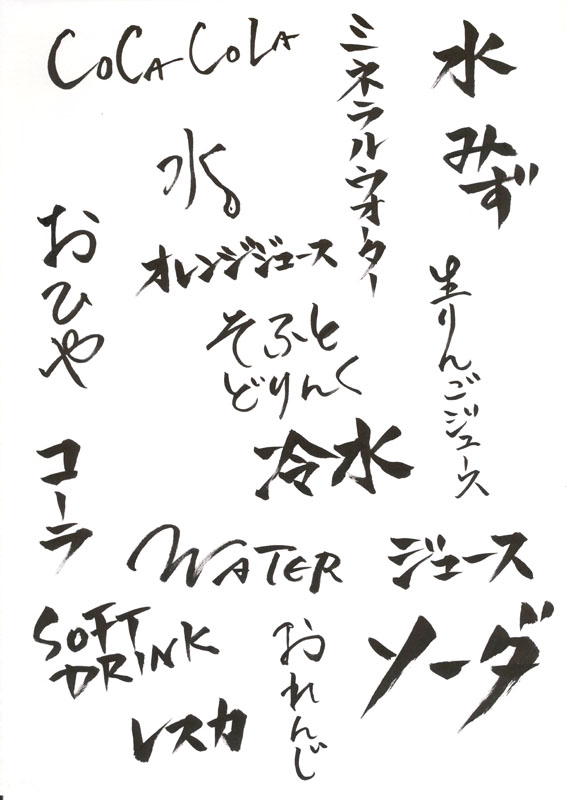 COCA COLA
ミネラルウォーター
水
みず
水
おひや
オレンジジュース
生りんごジュース
そふと
どりんく
コーラ
冷水
WATER
ジュース
SOFT
DRINK
おれんじ
ソーダ
レスカ